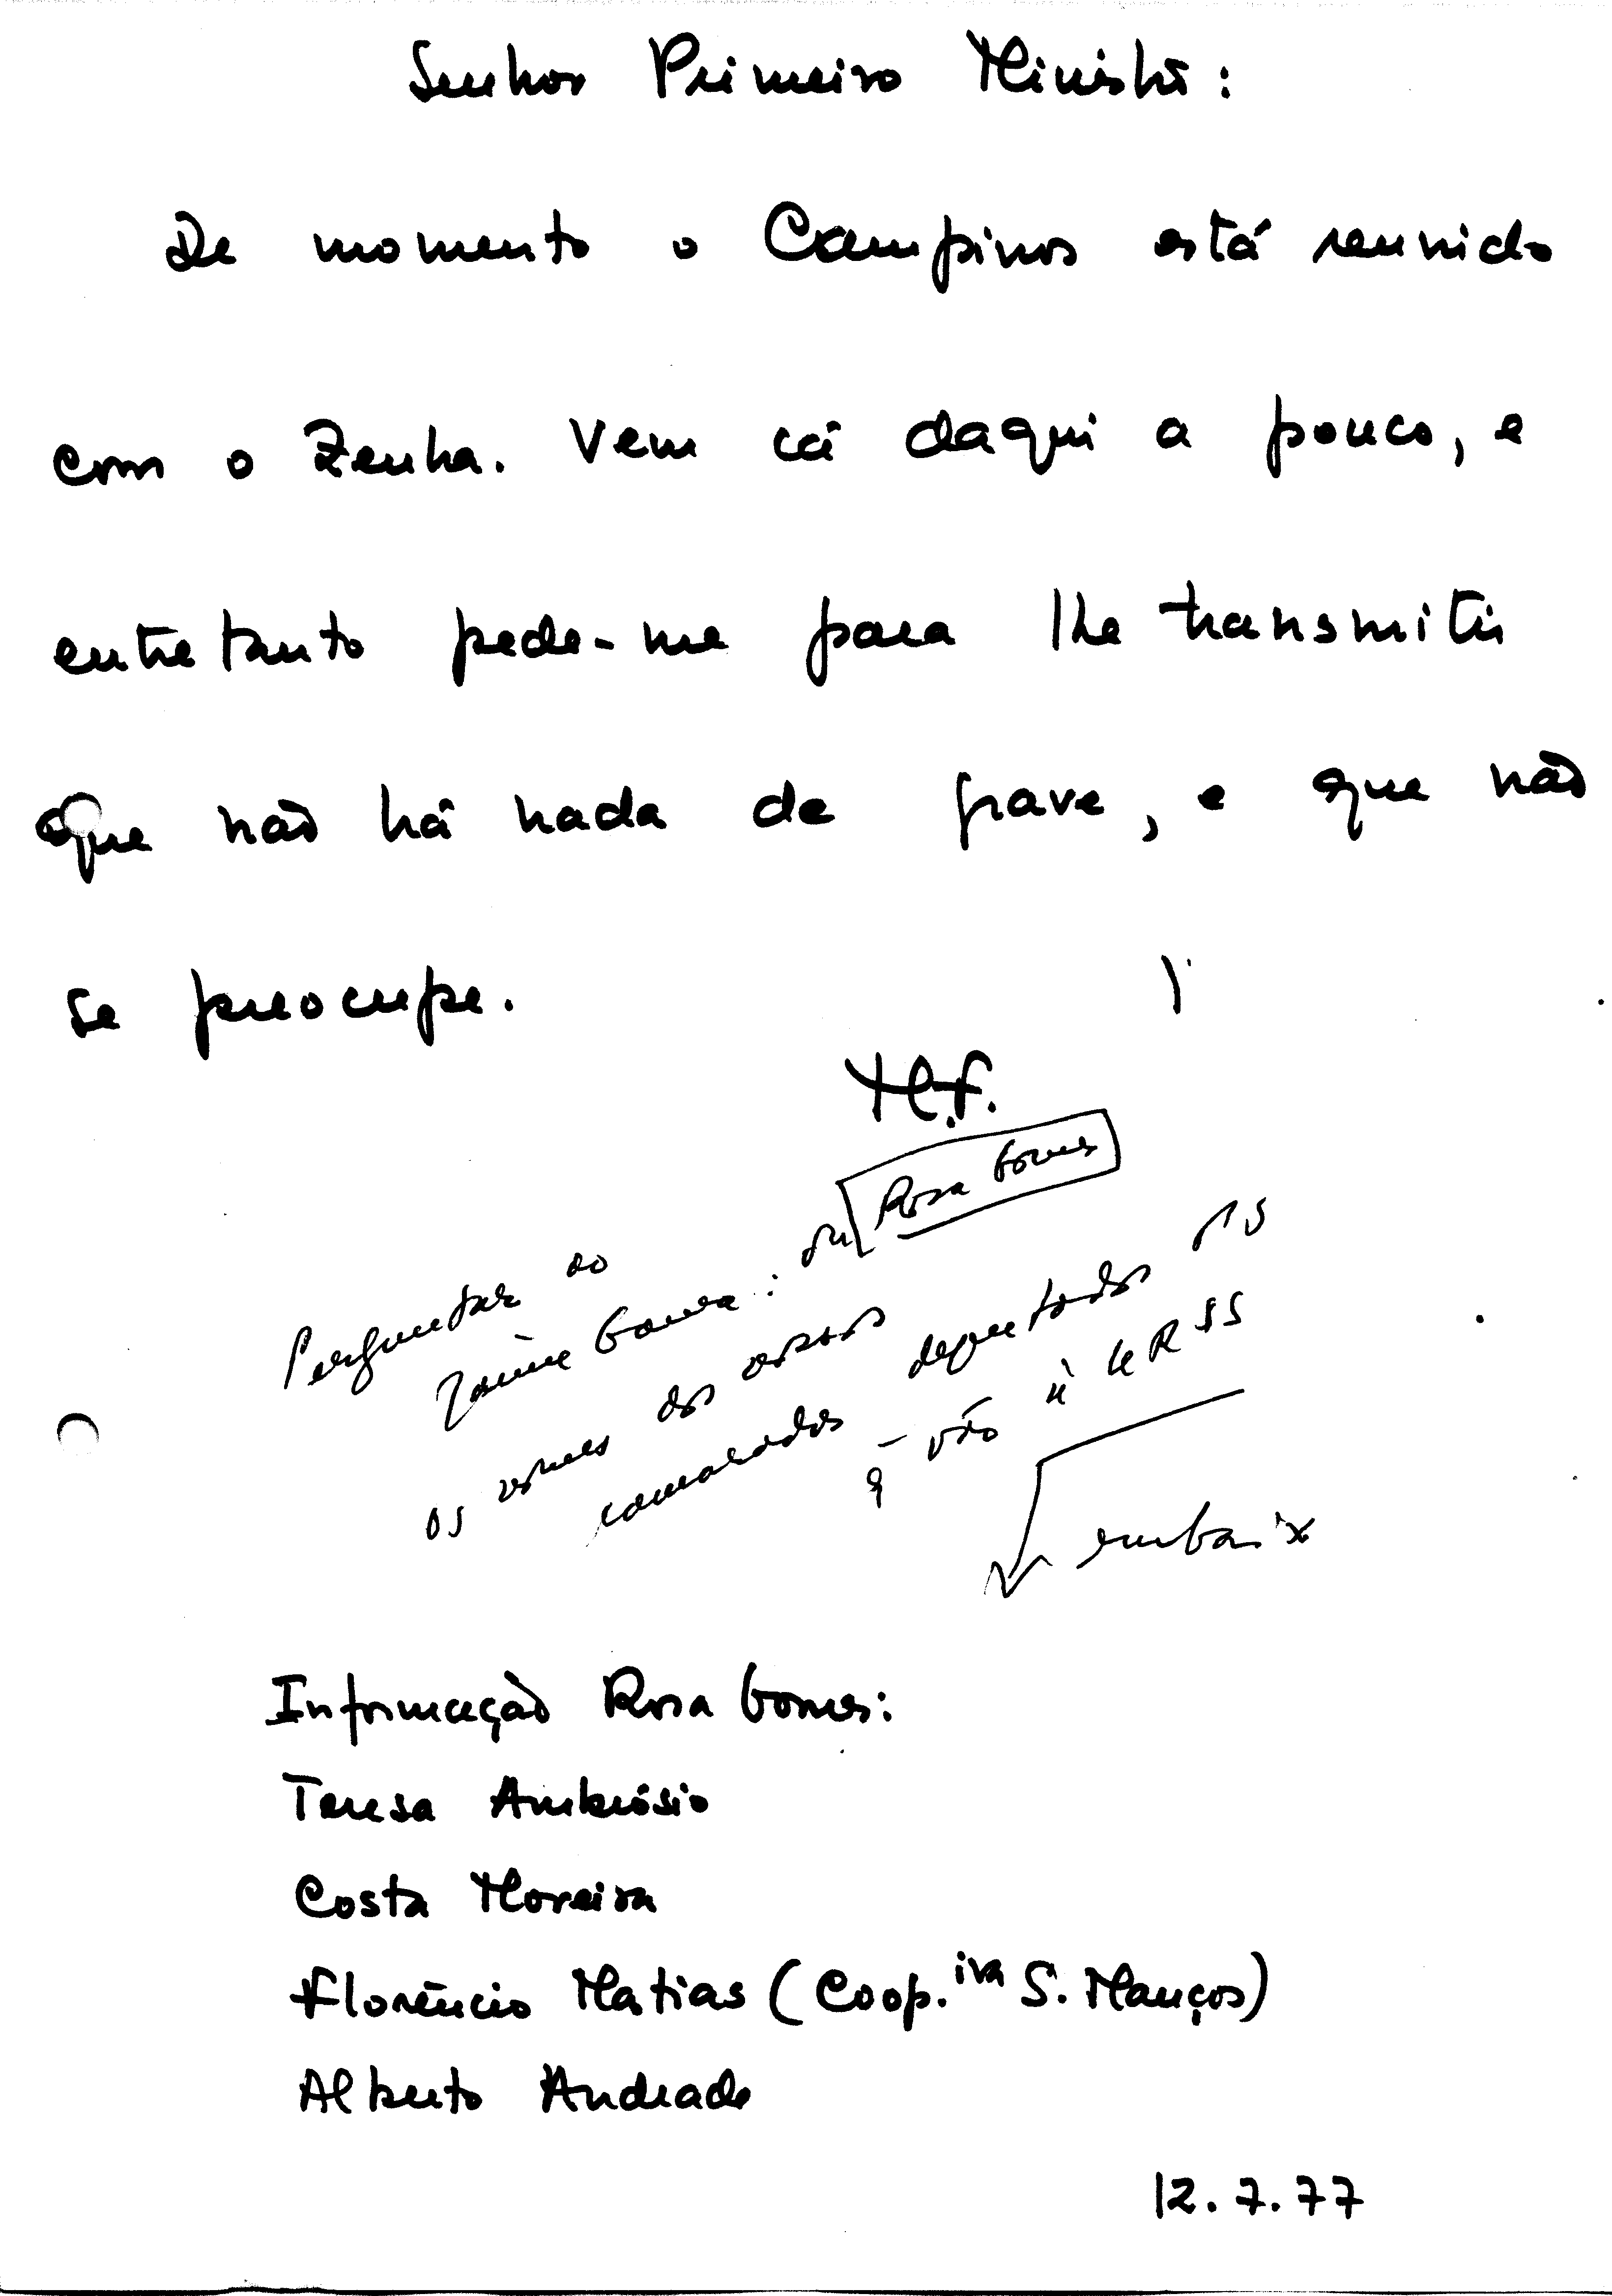 Senhor Primeiro Ministro:
De momento o Campinos está reunido
com o Zenha. Vem cá daqui a pouco, e
entretanto pede-me para lhe transmitir
que não há nada de grave, e que não
se preocupe.
M.F.
Perguntar ao
Jaime Gama: ou Rosa Gomes
os nomes dos nossos
camaradas deputados PS
q̃ vão à URSS
embaix
Informação Rosa Gomes:
Teresa Ambrósio
Costa Moreira
Florêncio Matias (Coop.iva S. Manços)
Alberto Andrade
12.7.77